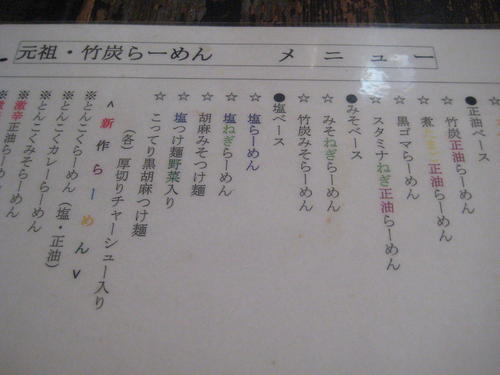 元祖・竹炭らーめん メニュー
●正油ベース
☆ 竹炭正油らーめん
☆ 煮たまご正油らーめん
☆ 黒ゴマらーめん
☆ スタミナねぎ正油らーめん
●みそベース
☆ みそねぎらーめん
☆ 竹炭みそらーめん
●塩ベース
☆ 塩らーめん
☆ 塩ねぎらーめん
☆ 胡麻みそつけ麺
☆ 塩つけ麺野菜入り
☆ こってり黒胡麻つけ麺
(各)厚切りチャーシュー入り
<新作らーめん>
※とんこくらーめん(塩・正油)
※とんこくカレーらーめん
※とんこくみそらーめん
※激辛正油らーめん